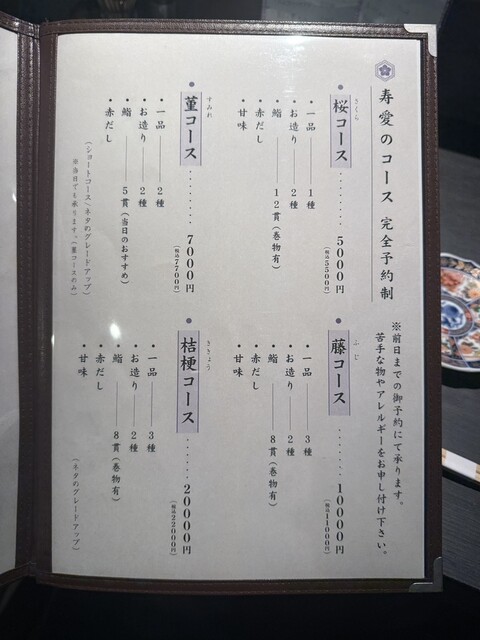 寿愛のコース 完全予約制
※前日までの御予約にて承ります。
苦手な物やアレルギーをお申し付け下さい。
さくら
桜コース ・・・・・・・ 5000円
(税込5500円)
・一品 ―― 1種
・お造り ―― 2種
・鮨 ―― 12貫(巻物有)
・赤だし
・甘味
ふじ
藤コース ・・・・・・・ 10000円
(税込11000円)
・一品 ―― 3種
・お造り ―― 2種
・鮨 ―― 8貫(巻物有)
・赤だし
・甘味
すみれ
菫コース ・・・・・・・ 7000円
(税込7700円)
・一品 ―― 2種
・お造り ―― 2種
・鮨 ―― 5貫(当日のおすすめ)
・赤だし
(ショートコース/ネタのグレードアップ)
※当日でも承ります。(菫コースのみ)
ききょう
桔梗コース ・・・・・ 20000円
(税込22000円)
・一品 ―― 3種
・お造り ―― 2種
・鮨 ―― 8貫(巻物有)
・赤だし
・甘味
(ネタのグレードアップ)